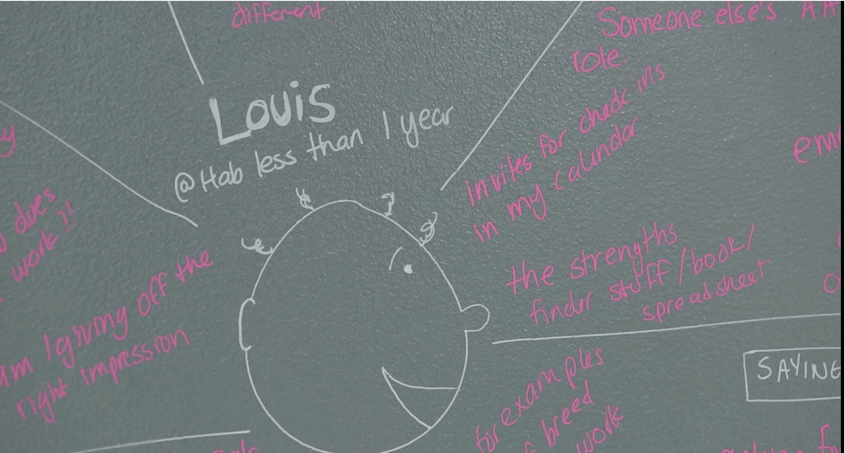 different
Someone else's
role
Louis
@Hab less than 1 year
invites for check ins
in my calindar
does
work ?!
the strengths
finder stuff/book/
spreadsheet
am I giving off the
right impression
SAYING
for examples
breed
work